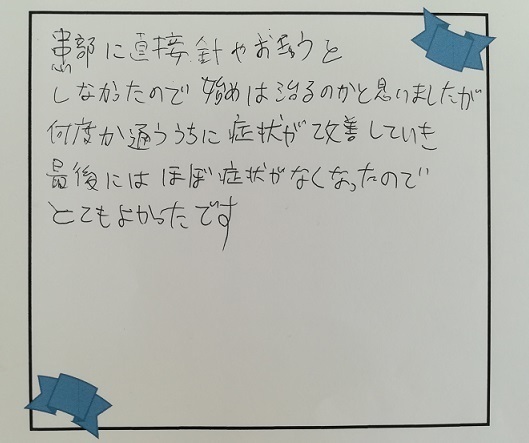 患部に直接針やお灸うと
しなかったので始めは治るのかと思いましたが
何度か通ううちに症状が改善していき
最後にはほぼ症状がなくなったので
とてもよかったです